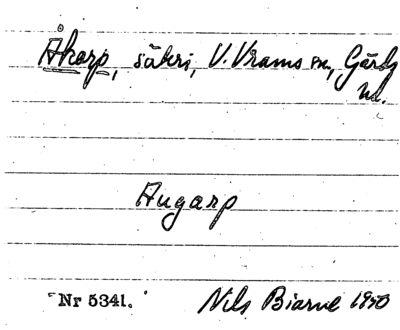 Åkarp, säteri, V. Vrams sn, Gärds
hd.
Augarp
Nr 5341.
Nils Biarne 1950